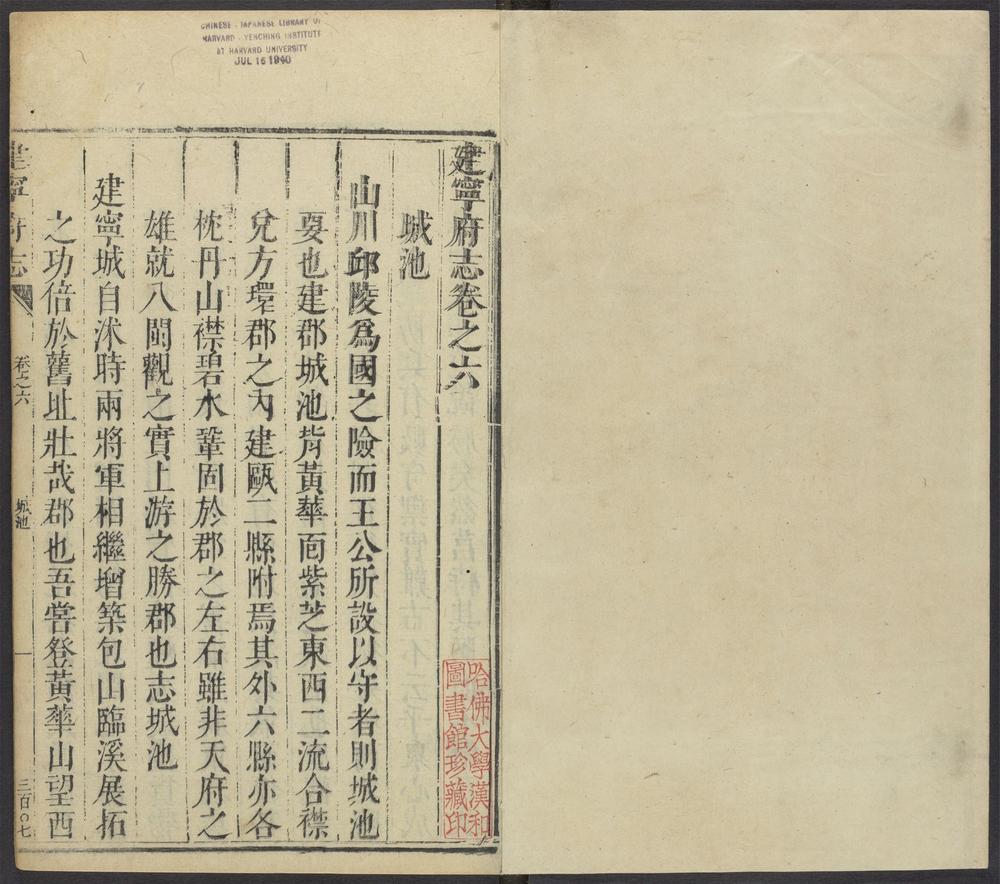 CHINESE - JAPANESE LIBRARY OF
HARVARD - YENCHING INSTITUTE
AT HARVARD UNIVERSITY
JUL 16 1940
建寧府志卷之六
城池
山川邱陵爲國之險而王公所設以守者則城池
要也建郡城池背黃華面紫芝東西二流合襟
兌方環郡之內建甌二縣附焉其外六縣亦各
枕丹山襟碧水鞏固於郡之左右雖非天府之
雄就八閩觀之實上游之勝郡也志城池
建寧城自洣時兩將軍相繼增築包山臨溪展拓
之功倍於舊址壯哉郡也吾嘗登黃華山望西
建寧府志
卷之六
城池
一
三百〇七
哈佛大學漢和
圖書館珍藏印